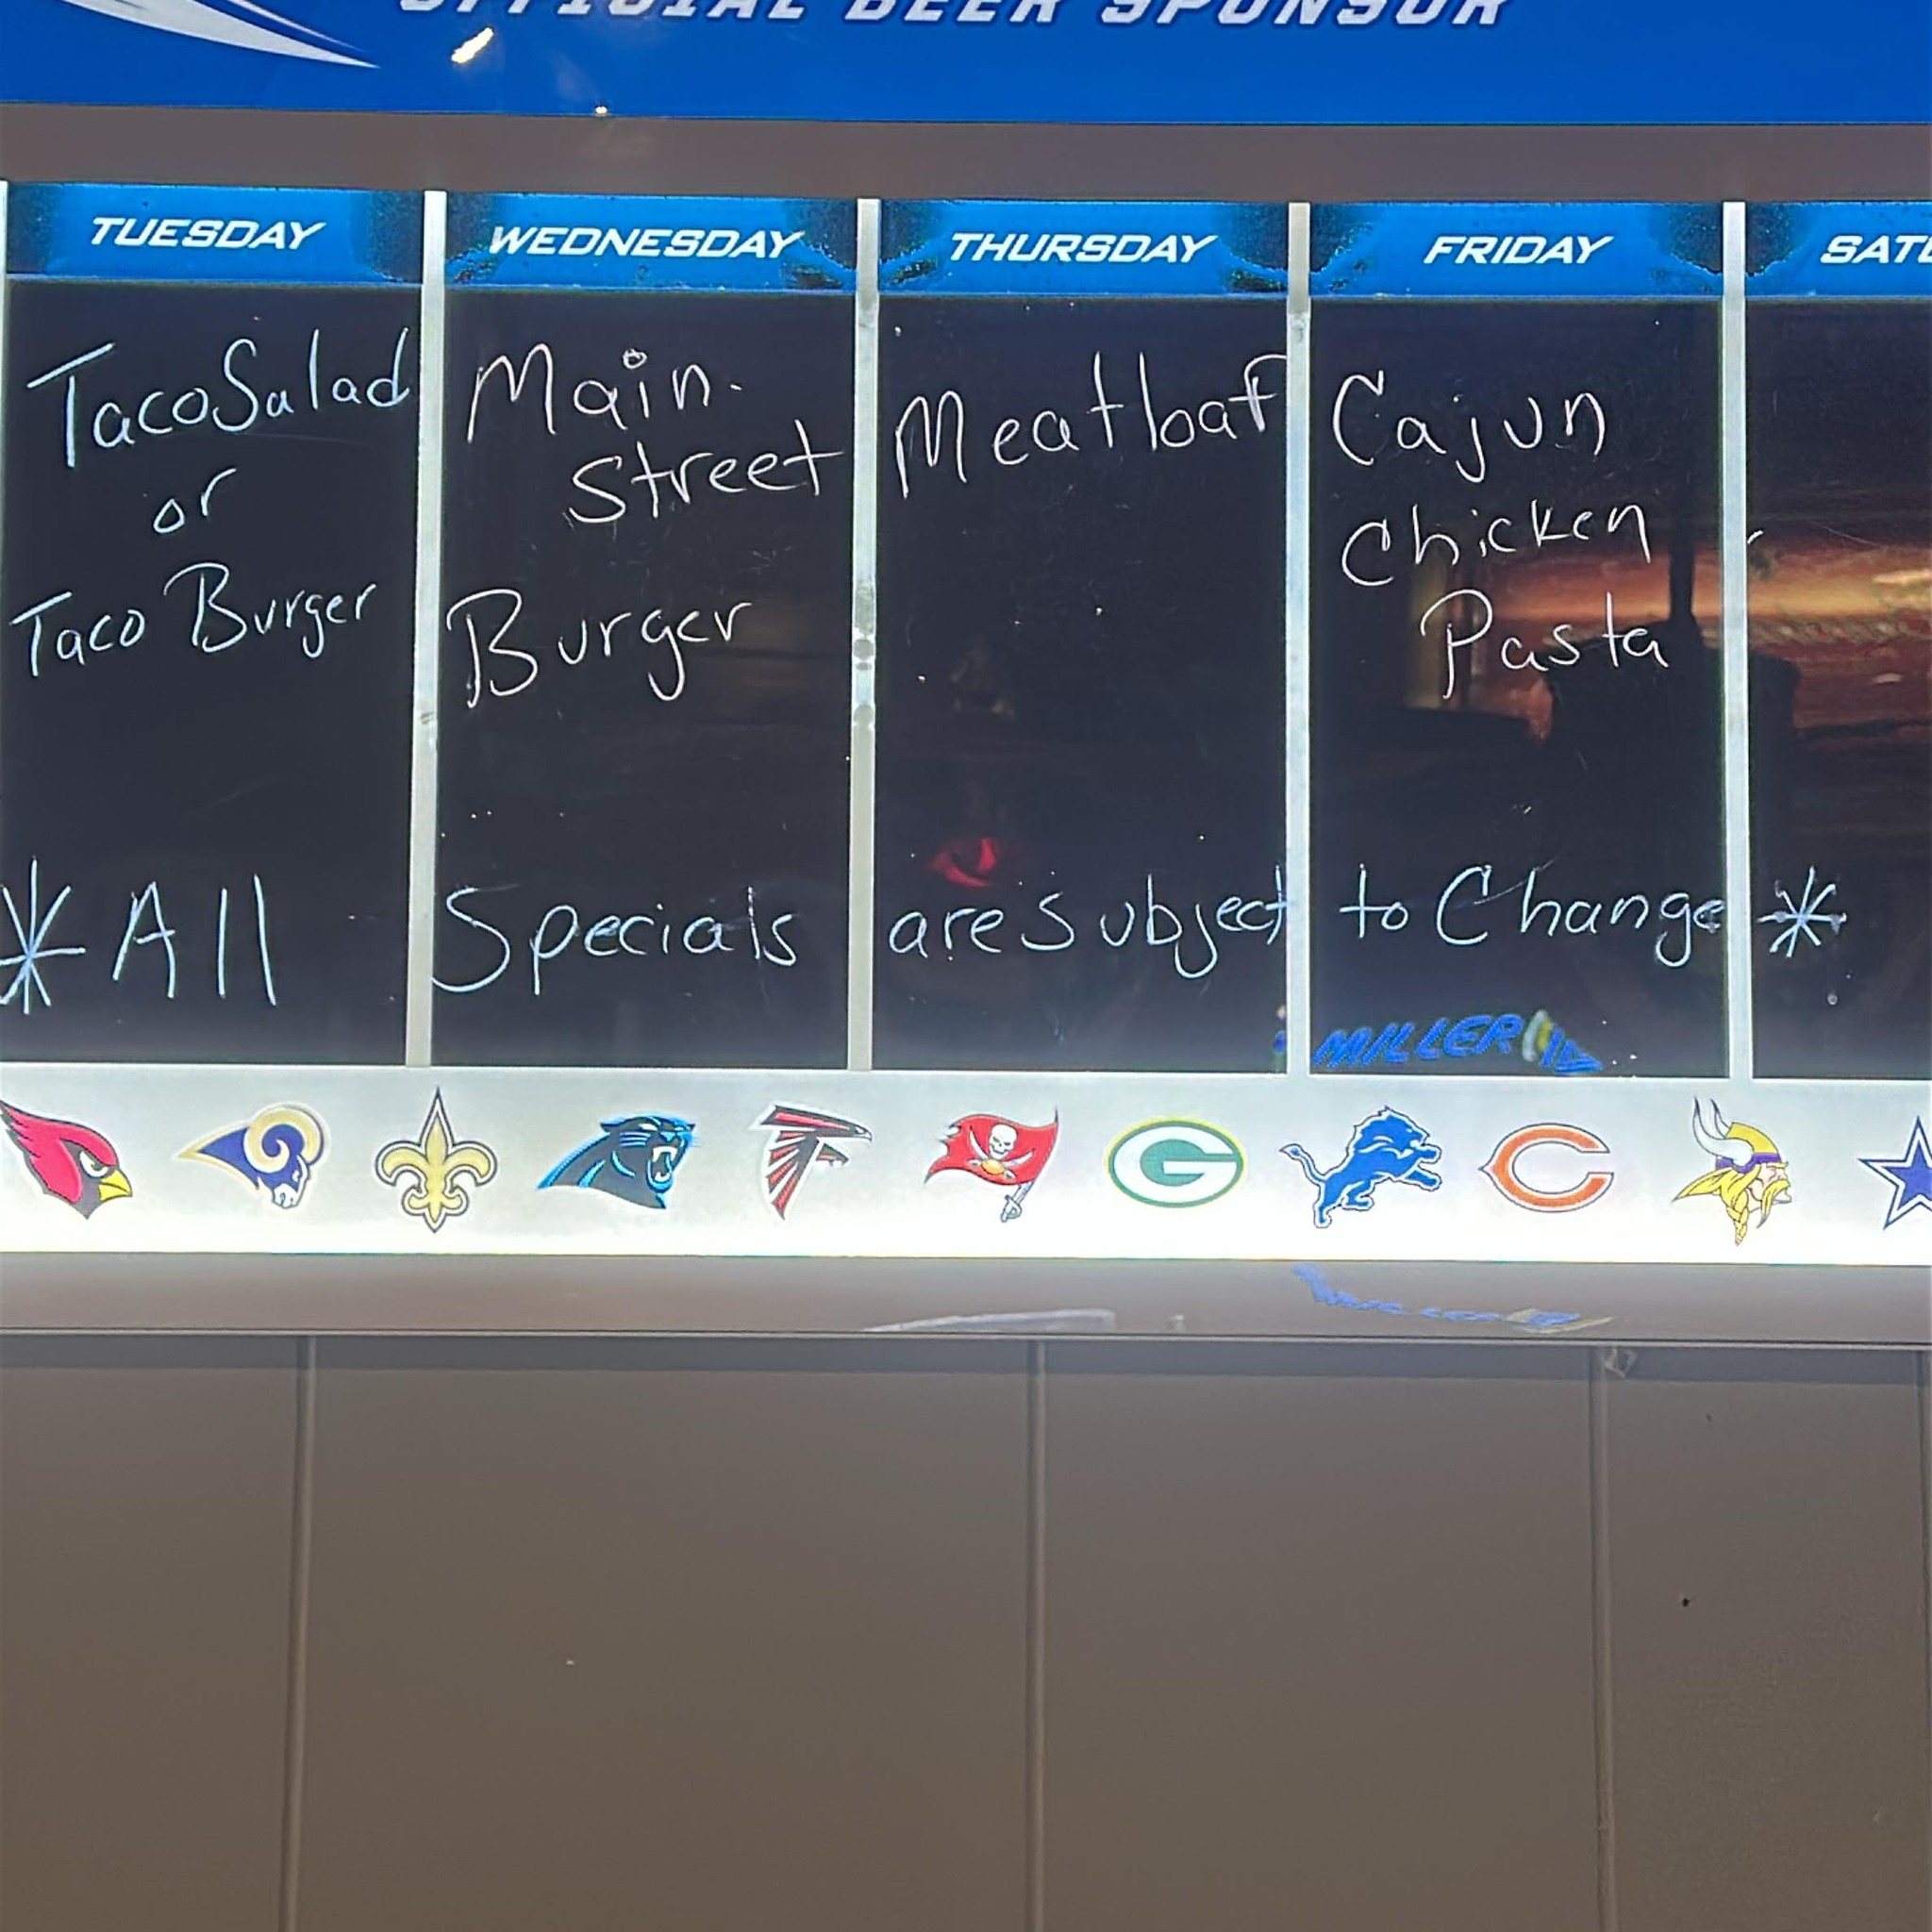 OFFICIAL BEER SPONSOR
TUESDAY
Taco Salad
or
Taco Burger
WEDNESDAY
Main
Street
Burger
THURSDAY
Meatloaf
FRIDAY
Cajun
Chicken
Pasta
SATU
* All Specials are subject to Change *
MILLER